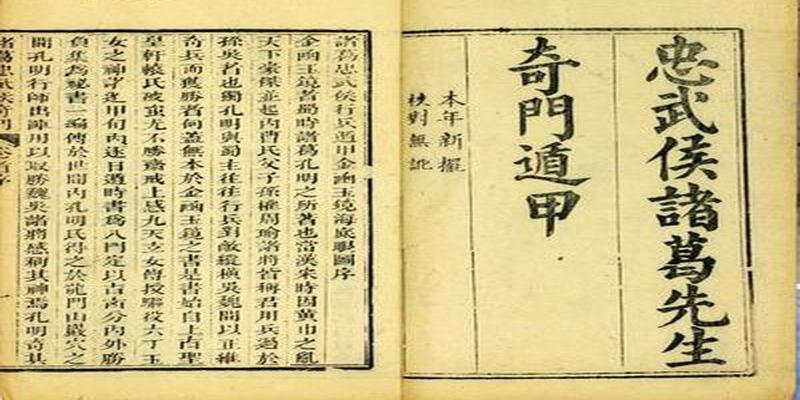 忠武侯諸葛先生
奇門遁甲
本年新撰
校對無訛
諸葛忠武侯行兵遁甲金函玉鏡海底眼圖序
金函玉鏡者蜀時諸葛孔明之所著也當漢末時因黄巾之亂
天下豪傑並起内曹氏父子孫權周瑜諸將皆稱君用兵過於
孫吳者也獨孔明與蜀主往往行兵對敵縱横吳魏間以正維
奇兵而獲勝者何蓋無本於金函玉鏡之書是書始自上古聖
皇軒轅氏破蚩尤不勝齋戒上感九天玄女傳授驅役六丁玉
女之神詩迄甲旬内逐日遁時書爲八門定以吉凶分内外勝
負集爲秘書一編傳於世間内孔明氏得之於龍門山巖穴之
間孔明行師出陣用以取勝魏吳諸將感稱其神焉孔明奇其